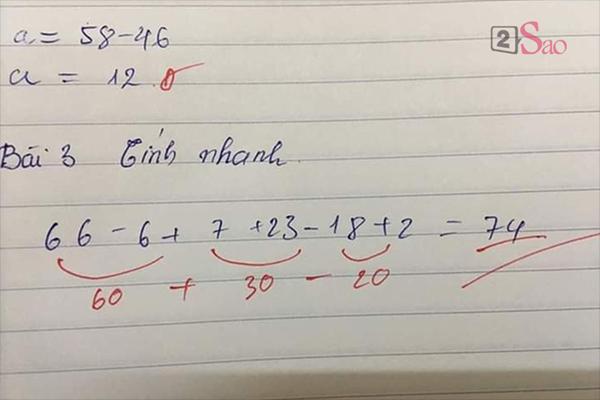 2 Sao
a = 58-46
a = 12
Bài 3 Tính nhanh
66 - 6 + 7 + 23 - 18 + 2 = 74
60 + 30 - 20